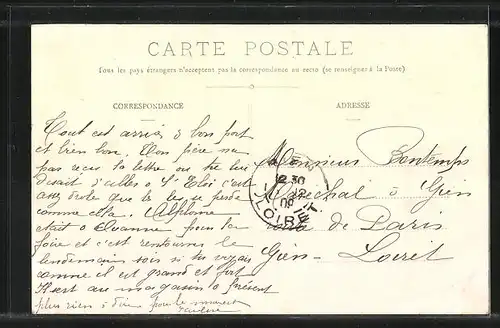 CARTE POSTALE
Tous les pays étrangers n'acceptent pas la correspondance au recto (se renseigner à la Poste)
CORRESPONDANCE
ADRESSE
Tout est arrivé à bon port
et bien bon. Mon père n'a
pas reçu la lettre ou tu lui
disait d'aller à St Eloi c'est
assez drole que les se perde
comme cela. Alphonse
était à Ouanne pour la
foire et c'est retourner le
lendemain soir si tu voyais
comme il est grand et fort
Il est au magasin à présent
plus rien à dire pour le moment
GIEN
12 30
12
09
LOIRET
Monsieur Bontemps
Maréchal à Gien
route de Paris
Gien Loiret